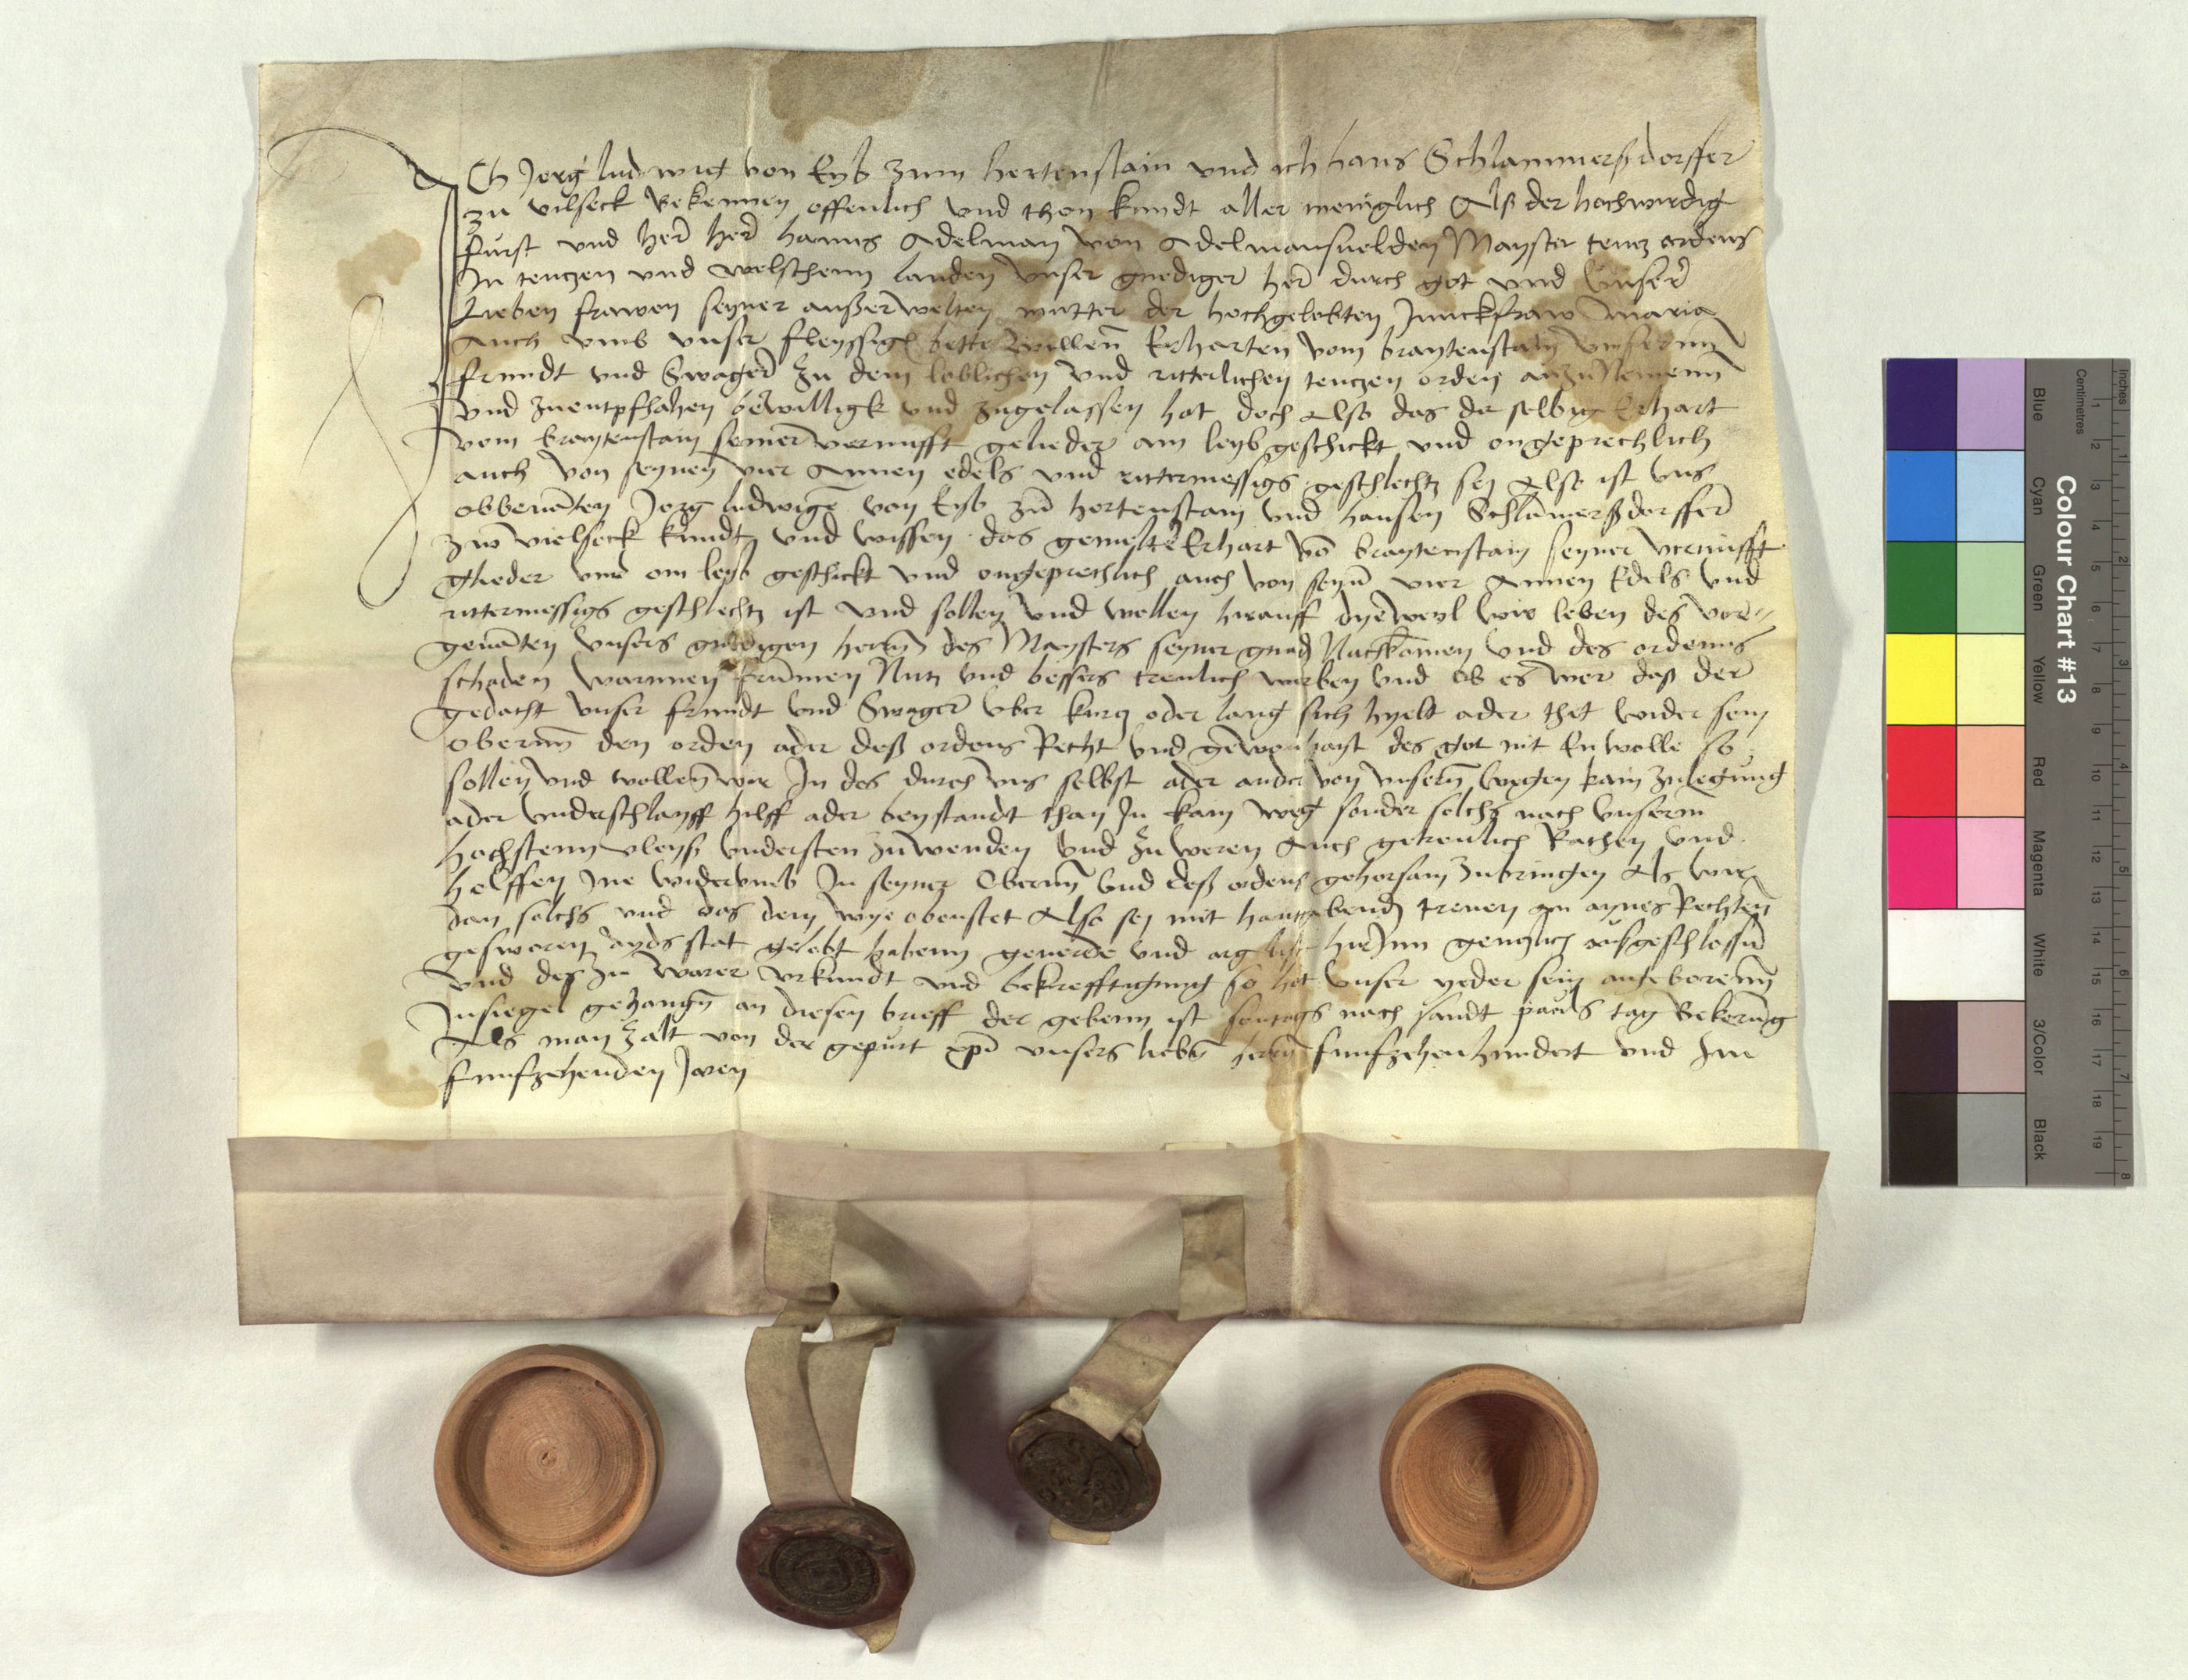 Ich Jorg ludwig von Eyb zum hertenstain und ich hans Schlammerßdorffer
zu vilseck Bekennen offenlich und thon kundt aller meniglich Alß der hochwirdig
furst und her her hanns Adelman von Adelmansuelden Mayster teucz ordens
In teuczen und welschenn landen unser gnediger her durch got und unser
Lieben frawen seyner außerwelten mutter der hochgelobten Junckfraw maria
Auch umb unser fleyssig bette willenn Erharten vom brantenstain unserm
frundt und Swager zu dem loblichen und ritterlichen teuczen orden anzunemenn
und zuentpfhahen bewilligt und zugelassen hat doch Also das der selbig Erhart
vom brantenstain seiner vernufft gelieder am leyb geschickt und ongeprechlich
auch von seynen vier Annen edels und rittermessigs geschlechtz sey Also ist uns
obbenāten Jorg ludwigē von Eyb zū hertenstain und hansen Schlāmerßdorffer
zw vielseck kundt und wissen das gemelte Erhart vō brantenstain seyner vernufft
glieder und am leyb geschickt und ongeprechlich auch von seynē vier Annen Edels und
rittermessigs geschlechtz ist und sollen und wollen hirauff dye weyl wir leben des vor
genāten unsers gnedigen herrn des Maysters seyner gnad Nachkomen und des ordenns
schaden warnnen frummen Nutz und bessers treulich werben und ob es wer daß der
gedacht unser frundt und Swager uber kurcz oder lang sich hyelt ader thet wider sein
oberunn den orden ader deß ordens Recht und gewonhayt des got nit Enwolle so
sollen und wollen wir In des durch uns selbst ader ander von unsern wegen kain zulegung
ader underschlayff hilff ader beystandt than In kain weg sonder solchs nach unserm
hochstenn vleyß understen zuwenden und zu weren Auch getreulich Rathen und
helffen Ine widerumb In seyner Oberunn und deß ordens gehorsam zubringen Als wir
dan solchs und das dem wye obenstet Also sey mit hantgebend treuen an aynes Rechten
gesworen ayds stat gelobt habenn geuerde und arglist hirInn genczlich außgeschlossen
und des zu warer urkundt und bekrefftigung so hat unser yeder sein angeborenn
Insiegel gehangn an diesen brieff der gebenn ist sontags nach sandt pauls tag Bekerung
Als man zalt von der gepurt xpī unsers liebn herrn funfzehenhundert und Im
funfzehenden Jaren
Colour Chart #13
Blue
Cyan
Green
Yellow
Red
Magenta
White
3/Color
Black
Centimetres
Inches
1 2 3 4 5 6 7 8 9 10 11 12 13 14 15 16 17 18 19
1 2 3 4 5 6 7 8